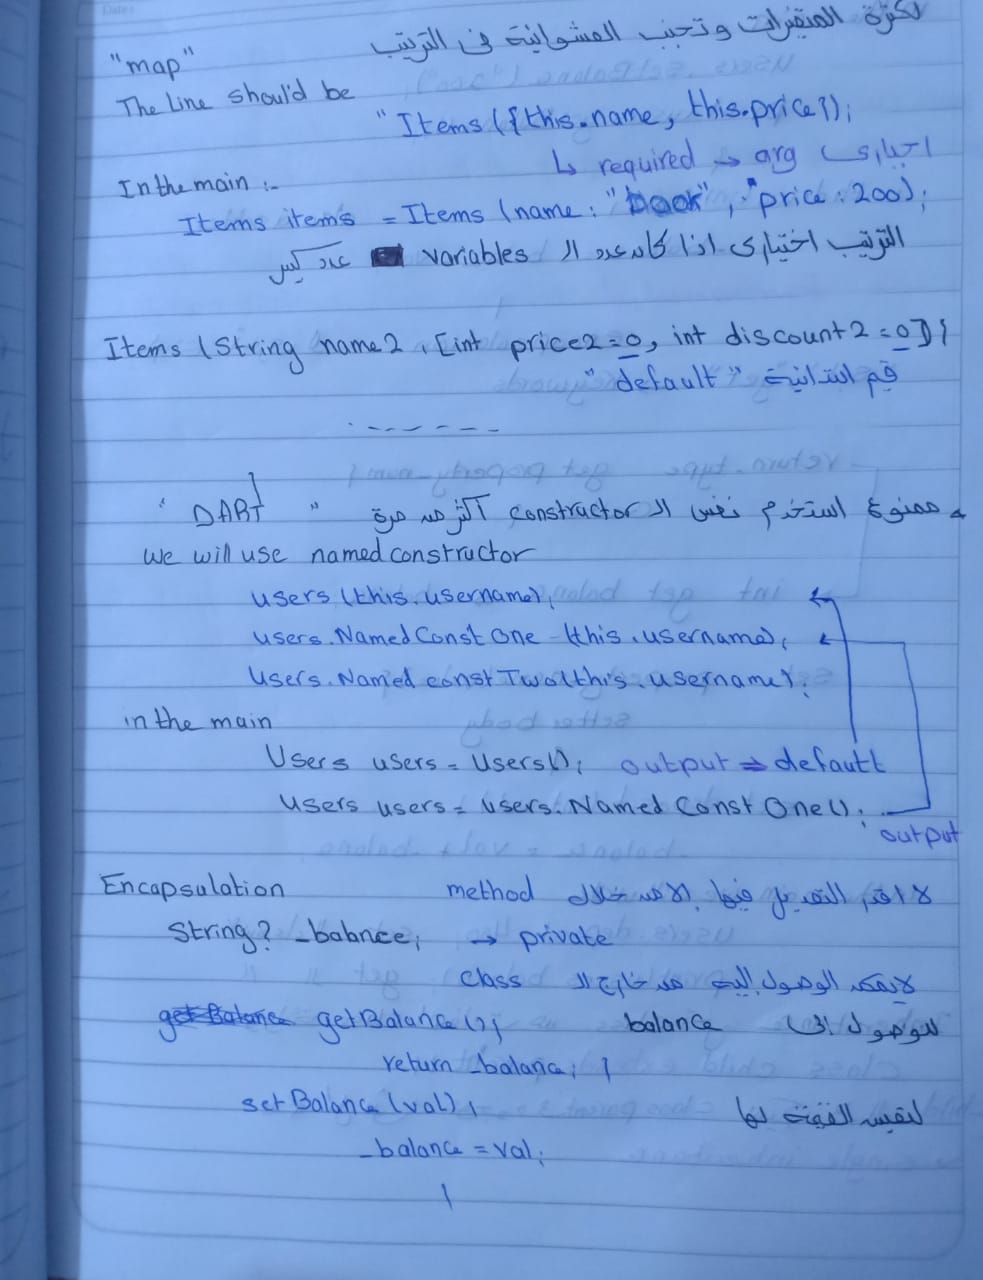 لكثرة المتغيرات وتجنب العشوائية فى الترتيب
"map"
The Line should be
"Items ({this.name, this.price});
↳ required → arg اجبارى
In the main :-
Items items = Items (name: "book", "price: 200);
الترتيب اختيارى اذا كان عدد ال variables عدد كبير
Items (String name2, [int price2=0, int discount2=0]){
"default" قيم ابتدائية
- - - - - -
ممنوع استخدم نفس ال constructor اكثر من مرة " DART "
we will use named constructor
users (this.username);
users.NamedConstOne (this.username);
Users.Named constTwo(this.username);
in the main
Users users = Users(); output ⇒ default
Users users = users.NamedConstOne();
output
Encapsulation method لا اقدر التعديل فيها الا من خلال
String? _balance; → private
لا يمكن الوصول اليه من خارج ال class
getBalance(){ balance للوصول الى
return _balance; }
setBalance(val){ لتغيير القيمة لها
_balance = val;
}